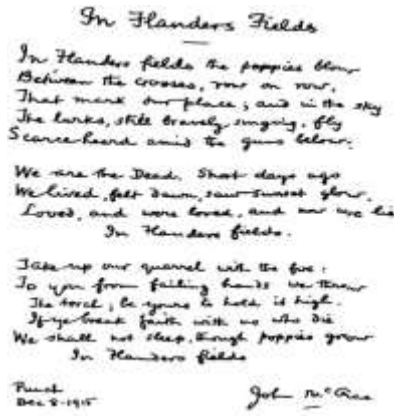 In Flanders Fields
In Flanders fields the poppies blow
Between the crosses, row on row,
That mark our place; and in the sky
The larks, still bravely singing, fly
Scarce heard amid the guns below.
We are the Dead. Short days ago
We lived, felt dawn, saw sunset glow,
Loved, and were loved, and now we lie
In Flanders fields.
Take up our quarrel with the foe:
To you from failing hands we throw
The torch; be yours to hold it high.
If ye break faith with us who die
We shall not sleep, though poppies grow
In Flanders fields
Punch
Dec 8-1915
John McCrae